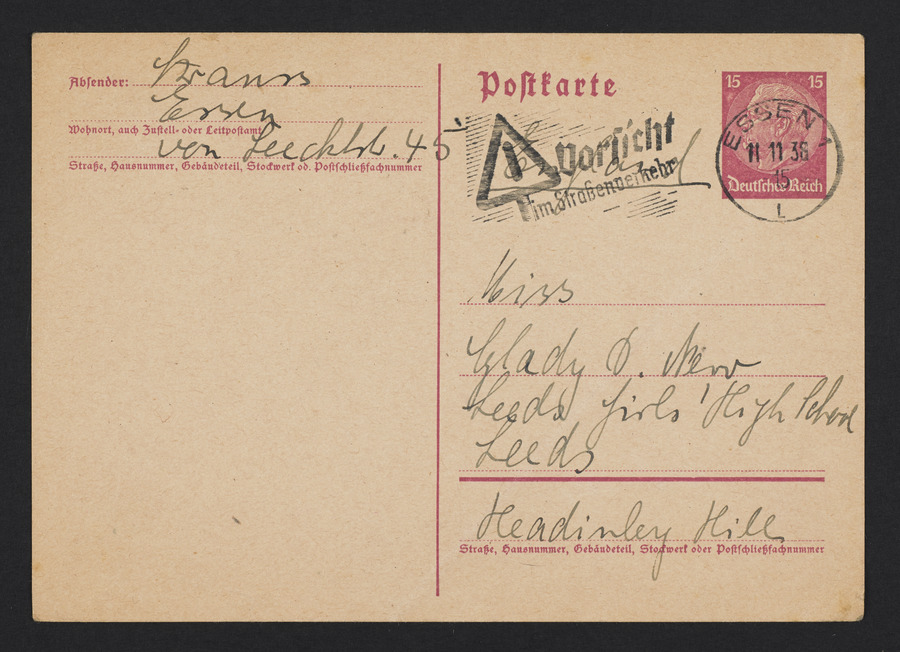 Absender: Strauss
Essen
Wohnort, auch Zustell- oder Leitpostamt
von Seecktstr. 45
Straße, Hausnummer, Gebäudeteil, Stockwerk od. Postschließfachnummer
Postkarte
15 15
Deutsches Reich
ESSEN 1
11 11 38
15
L
Vorsicht
im Straßenverkehr
England
Miss
Glady D.
Leeds Girls' High School
Leeds
Headinley Hill
Straße, Hausnummer, Gebäudeteil, Stockwerk oder Postschließfachnummer